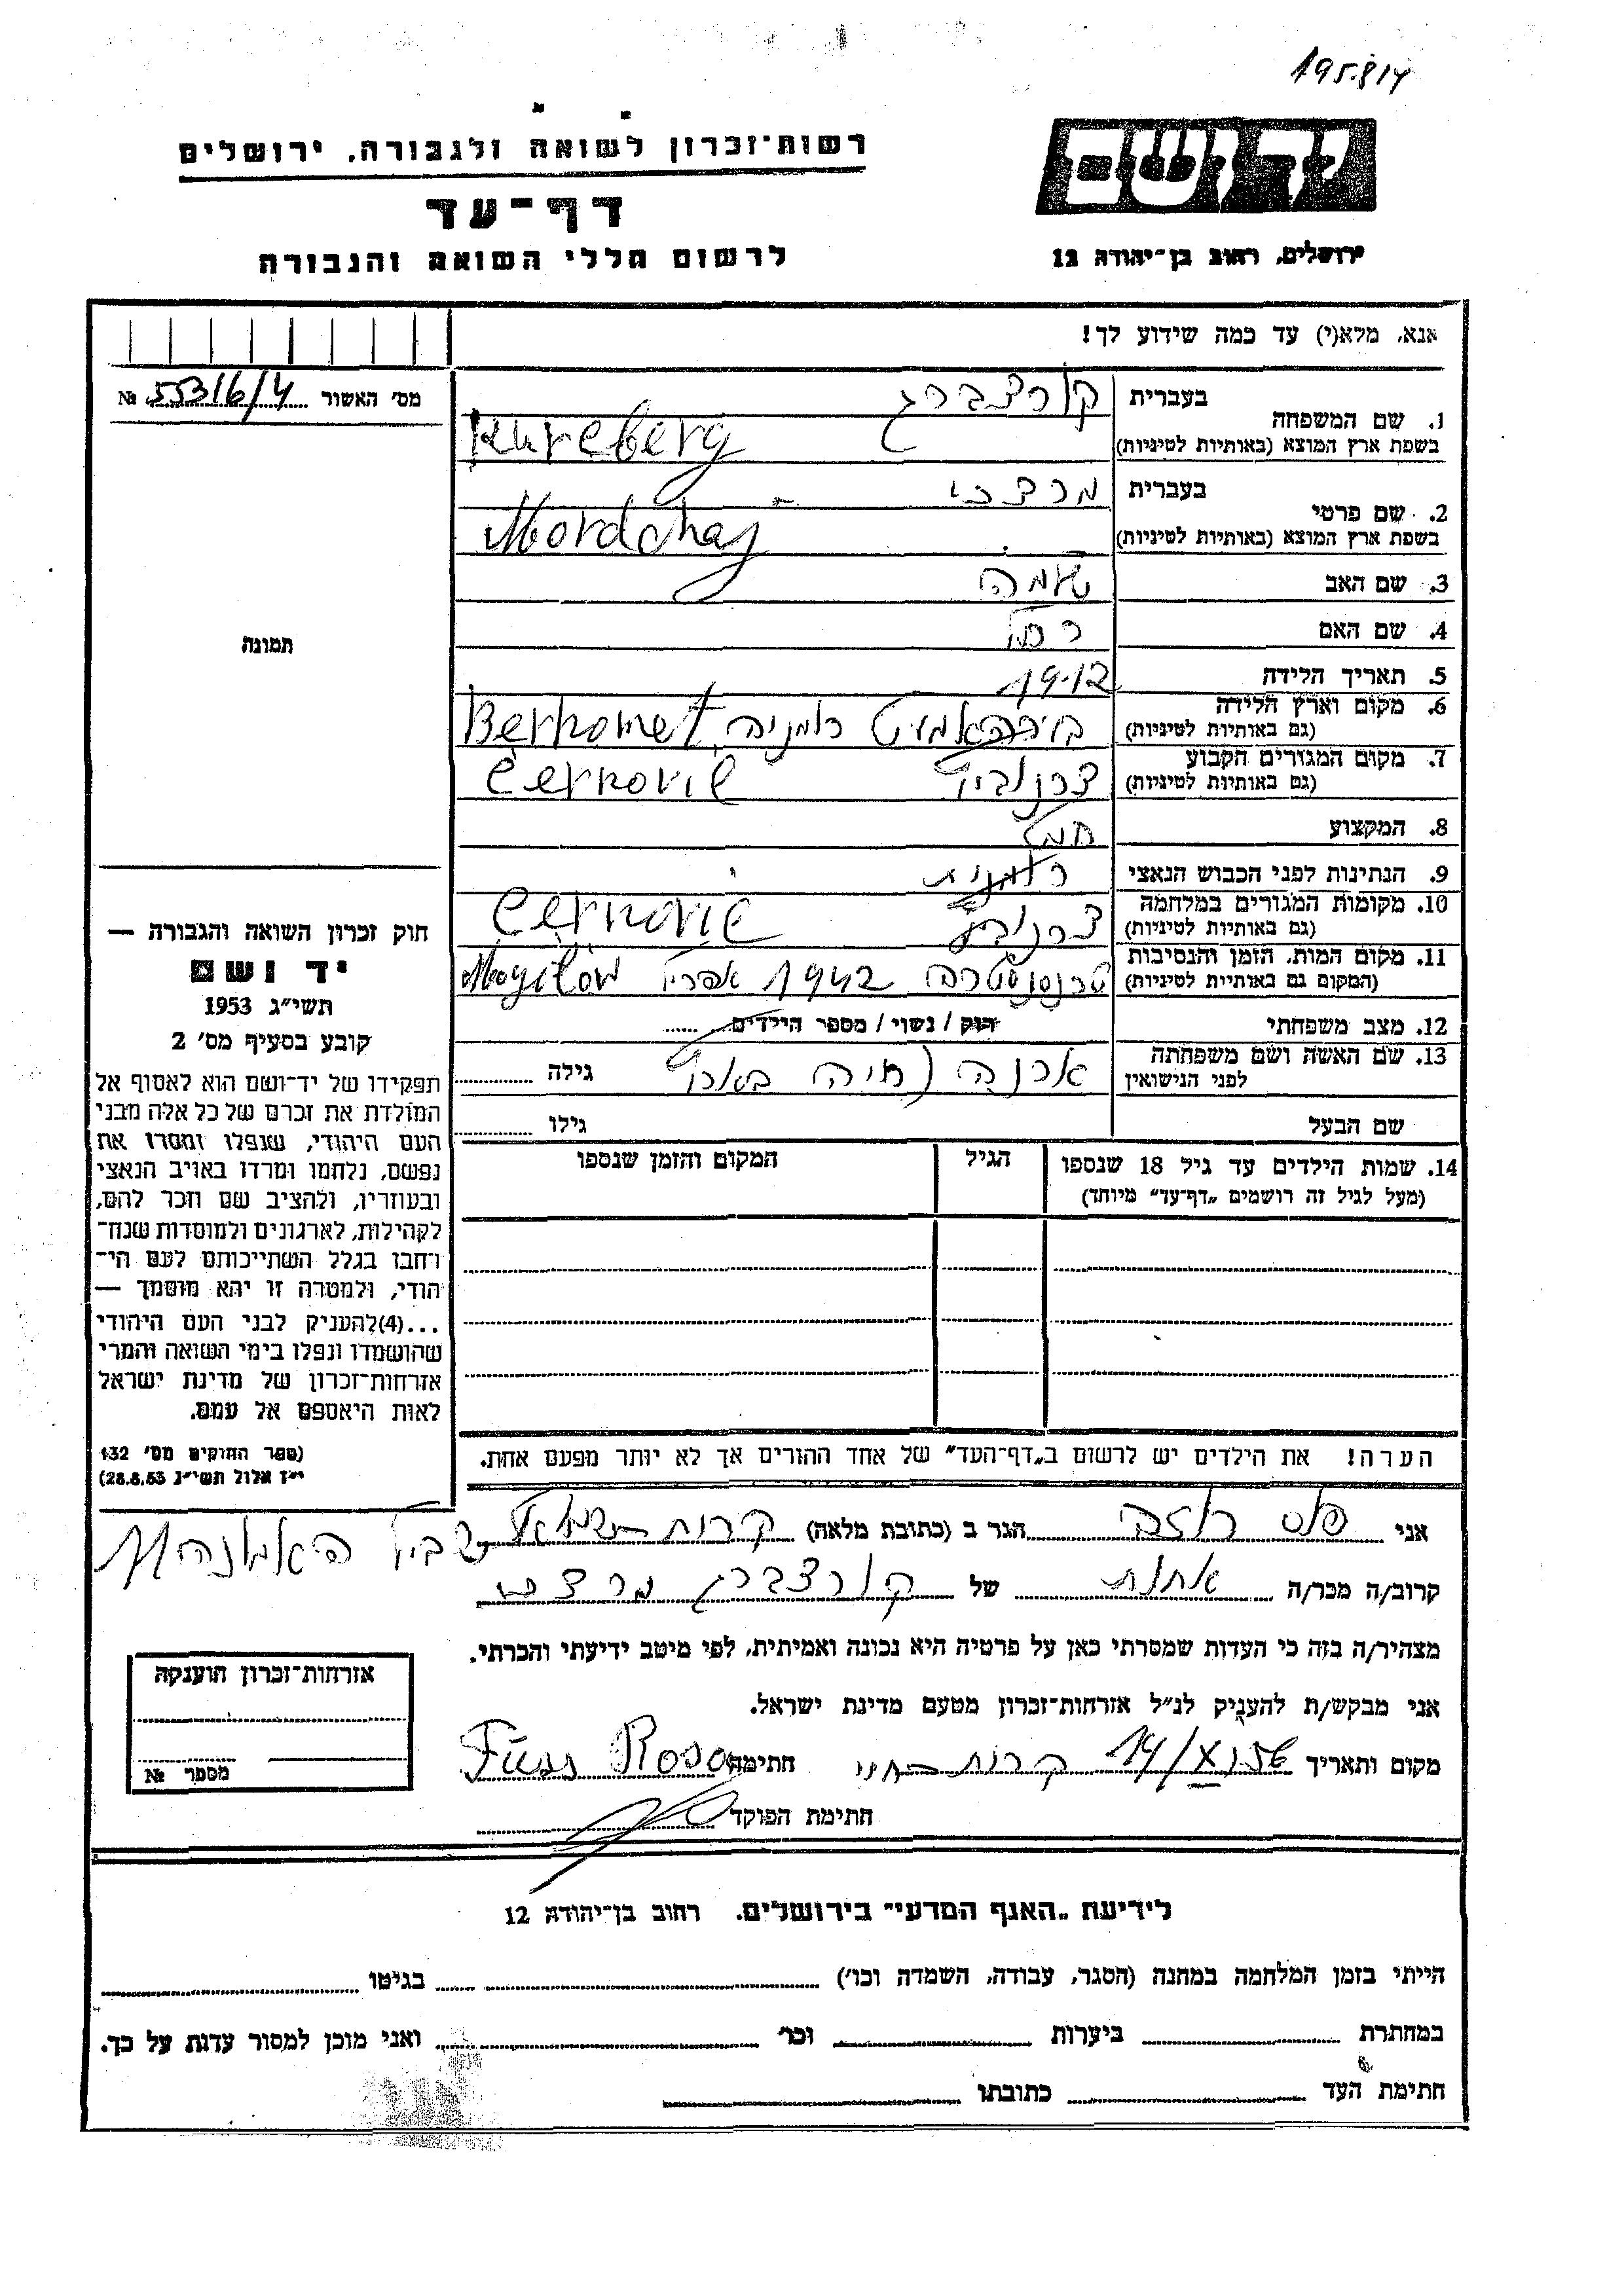 195.814
רשות־זכרון לשואה ולגבורה, ירושלים
דף־עד
לרשום חללי השואה והגבורה
ידושם
ירושלים, רחוב בן־יהודה 12
אנא, מלא(י) עד כמה שידוע לך!
מס׳ האשור № 55316/4
1. שם המשפחה בעברית קורצברג
בשפת ארץ המוצא (באותיות לטיניות) Kurcberg
2. שם פרטי בעברית מרדכי
בשפת ארץ המוצא (באותיות לטיניות) Mordchaj
3. שם האב
4. שם האם רחל
5. תאריך הלידה 1912
6. מקום וארץ הלידה
(גם באותיות לטיניות) רומניה Berhomet
7. מקום המגורים הקבוע
(גם באותיות לטיניות) צרנוביץ Černovic
8. המקצוע
9. הנתינות לפני הכבוש הנאצי רומנית
10. מקומות המגורים במלחמה
(גם באותיות לטיניות) צרנוביץ Černovic
11. מקום המות, הזמן והנסיבות
(המקום גם באותיות לטיניות) טרנסניסטריה אפריל 1942 Mogilow
12. מצב משפחתי רוק / נשוי / מספר הילדים
13. שם האשה ושם משפחתה
לפני הנישואין גילה
שם הבעל גילו
14. שמות הילדים עד גיל 18 שנספו
(מעל לגיל זה רושמים „דף־עד״ מיוחד)
הגיל
המקום והזמן שנספו
תמונה
חוק זכרון השואה והגבורה —
יד ושם
תשי״ג 1953
קובע בסעיף מס׳ 2
תפקידו של יד־ושם הוא לאסוף אל
המולדת את זכרם של כל אלה מבני
העם היהודי, שנפלו ומסרו את
נפשם, נלחמו ומרדו באויב הנאצי
ובעוזריו, ולהציב שם וזכר להם,
לקהילות, לארגונים ולמוסדות שנח־
רחבו בגלל השתייכותם לעם הי־
הודי, ולמטרה זו יהא מוסמך —
...(4)להעניק לבני העם היהודי
שהושמדו ונפלו בימי השואה והמרי
אזרחות־זכרון של מדינת ישראל
לאות היאספם אל עמם.
(ספר החוקים מס׳ 132
י״ז אלול תשי״ג 28.8.53)
הערה! את הילדים יש לרשום ב„דף־העד״ של אחד ההורים אך לא יותר מפעם אחת.
אני פוס רוזה הגר ב (כתובת מלאה) קרית־שמואל שביל האמונה
קרוב/ה מכר/ה אחות של קורצברג מרדכי
מצהיר/ה בזה כי העדות שמסרתי כאן על פרטיה היא נכונה ואמיתית, לפי מיטב ידיעתי והכרתי.
אני מבקש/ת להעניק לנ״ל אזרחות־זכרון מטעם מדינת ישראל.
מקום ותאריך 14/X 1956 קרית־ חתימה Füss Rosa
חתימת הפוקד
אזרחות־זכרון הוענקה
מספר №
לידיעת „האגף המדעי״ בירושלים. רחוב בן־יהודה 12
הייתי בזמן המלחמה במחנה (הסגר, עבודה, השמדה וכו׳) בגיטו
במחתרת ביערות וכו׳ ואני מוכן למסור עדות על כך.
חתימת העד כתובתו